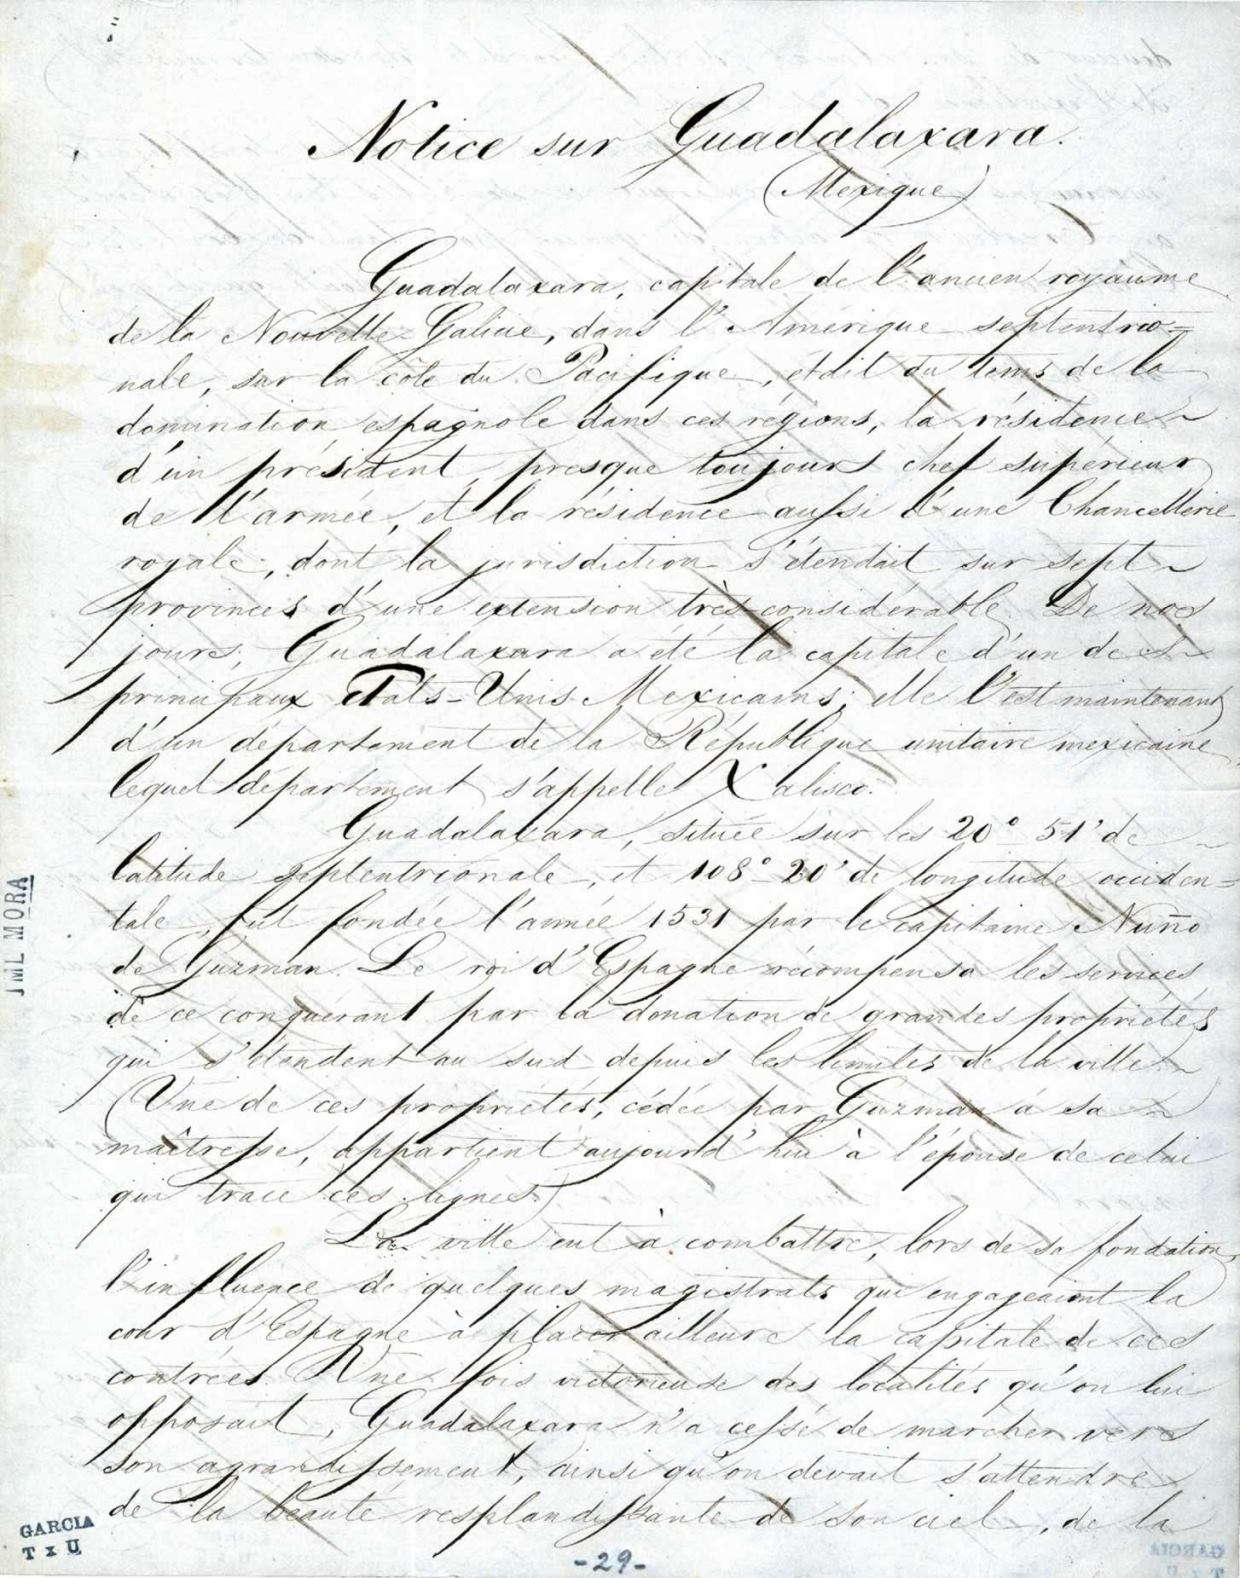 Notice sur Guadalaxara.
(Mexique)
Guadalaxara, capitale de l'ancien royaume
de la Nouvelle-Galicie, dans l'Amérique septentrio=
nale, sur la côte du Pacifique, etait du tems de la
domination espagnole dans ces régions, la résidence
d'un président, presque toujours chef supérieur
de l'armée, et la résidence aussi d'une Chancellerie
royale, dont la jurisdiction s'étendait sur sept
provinces d'une extension très-considérable. De nos
jours, Guadalaxara a été la capitale d'un des
principaux Etats-Unis Mexicains; elle l'est maintenant
d'un département de la République unitaire mexicaine
lequel département s'appelle Xalisco.
Guadalaxara, située sur les 20° 51' de
latitude septentrionale, et 108° 20' de longitude occiden=
tale, fut fondée l'année 1531 par le capitaine Nuño
de Guzman. Le roi d'Espagne récompensa les services
de ce conquérant par la donation de grandes propriétés
qui s'étendent au sud depuis les limites de la ville.
(Une de ces propriétés, cédée par Guzman à sa
maîtresse, appartient aujourd'hui à l'épouse de celui
qui trace ces lignes.)
La ville eut à combattre, lors de sa fondation,
l'influence de quelques magistrats qui engageaient la
cour d'Espagne à placer ailleurs la capitale de ces
contrées. Une fois victorieuse des localités qu'on lui
opposait, Guadalaxara n'a cessé de marcher vers
son agrandissement, ainsi qu'on devait s'attendre
de la beauté resplandissante de son ciel, de la
JML MORA
GARCIA
T x U
-29-